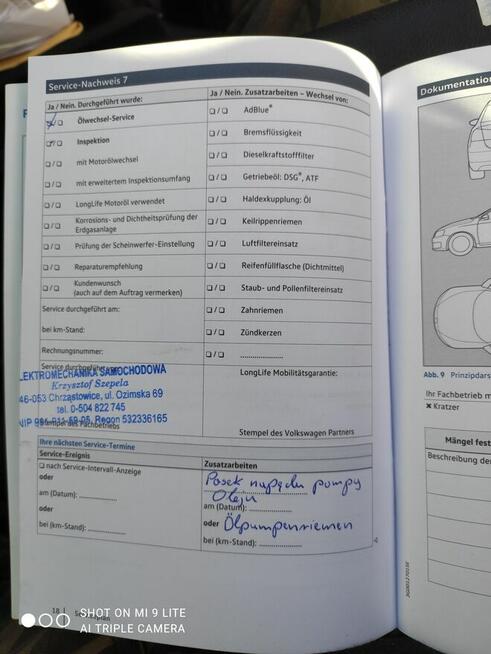 Service-Nachweis 7
Ja / Nein. Durchgeführt wurde:
Ölwechsel-Service
Inspektion
mit Motorölwechsel
mit erweitertem Inspektionsumfang
LongLife Motoröl verwendet
Korrosions- und Dichtheitsprüfung der
Erdgasanlage
Prüfung der Scheinwerfer-Einstellung
Reparaturempfehlung
Kundenwunsch
(auch auf dem Auftrag vermerken)
Service durchgeführt am:
bei km-Stand:
Rechnungsnummer:
Service durchgeführt
ELEKTROMECHANIKA SAMOCHODOWA
Krzysztof Szepela
46-053 Chrząstowice, ul. Ozimska 69
tel. 0-504 822 745
Regon 532336165
Stempel des Fachbetriebs
Ja / Nein. Zusatzarbeiten – Wechsel von:
AdBlue®
Bremsflüssigkeit
Dieselkraftstofffilter
Getriebeöl: DSG®, ATF
Haldexkupplung: Öl
Keilrippenriemen
Luftfiltereinsatz
Reifenfüllflasche (Dichtmittel)
Staub- und Pollenfiltereinsatz
Zahnriemen
Zündkerzen
LongLife Mobilitätsgarantie:
Stempel des Volkswagen Partners
Ihre nächsten Service-Termine
Service-Ereignis
nach Service-Intervall-Anzeige
oder
am (Datum):
oder
bei (km-Stand):
Zusatzarbeiten
Pasek napędu pompy
Oleju
am (Datum):
oder Ölpumpenriemen
bei (km-Stand):
18 | Serviceplan
Dokumentation
Abb. 9 Prinzipdars
Ihr Fachbetrieb m
Kratzer
Mängel fest
Beschreibung der
SHOT ON MI 9 LITE
AI TRIPLE CAMERA